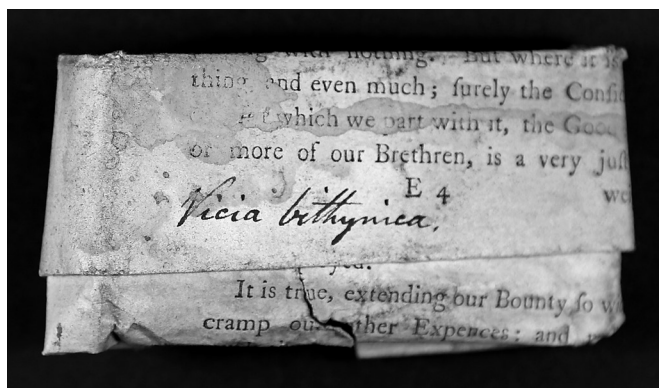 with nothing. But where it is
thing and even much; ſurely the
which we part with it, the
or more of our Brethren, is a very
E 4
Vicia bithynica.
It is true, extending our Bounty ſo
cramp other Expences: and